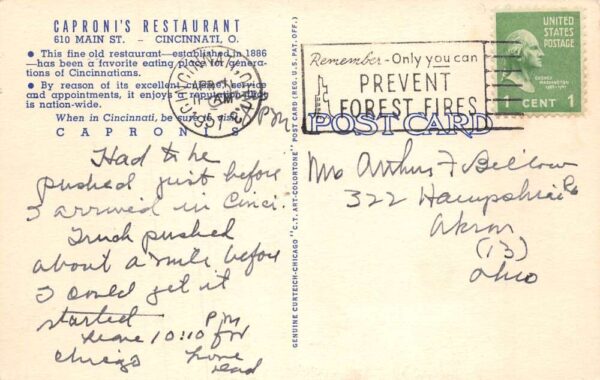 CAPRONI'S RESTAURANT
610 MAIN ST. - CINCINNATI, O.
• This fine old restaurant—established in 1886
—has been a favorite eating place for genera-
tions of Cincinnatians.
• By reason of its excellent cuisine, service
and appointments, it enjoys a reputation that
is nation-wide.
When in Cincinnati, be sure to visit
CAPRONI'S
CINCINNATI, OHIO
APR
AM
1951
PM
Had to be
pushed just before
I arrived in Cinci.
Truck pushed
about a mile before
I could get it
started
leave 10:10 PM for
Chicago
GENUINE CURTEICH-CHICAGO "C.T. ART-COLORTONE" POST CARD (REG. U.S. PAT. OFF.)
Remember - Only you can
PREVENT
FOREST FIRES
POST CARD
UNITED
STATES
POSTAGE
GEORGE
WASHINGTON
1 CENT 1
Mrs Arthur F. Bellow
322 Hampshire Rd
Akron
(13)
Ohio